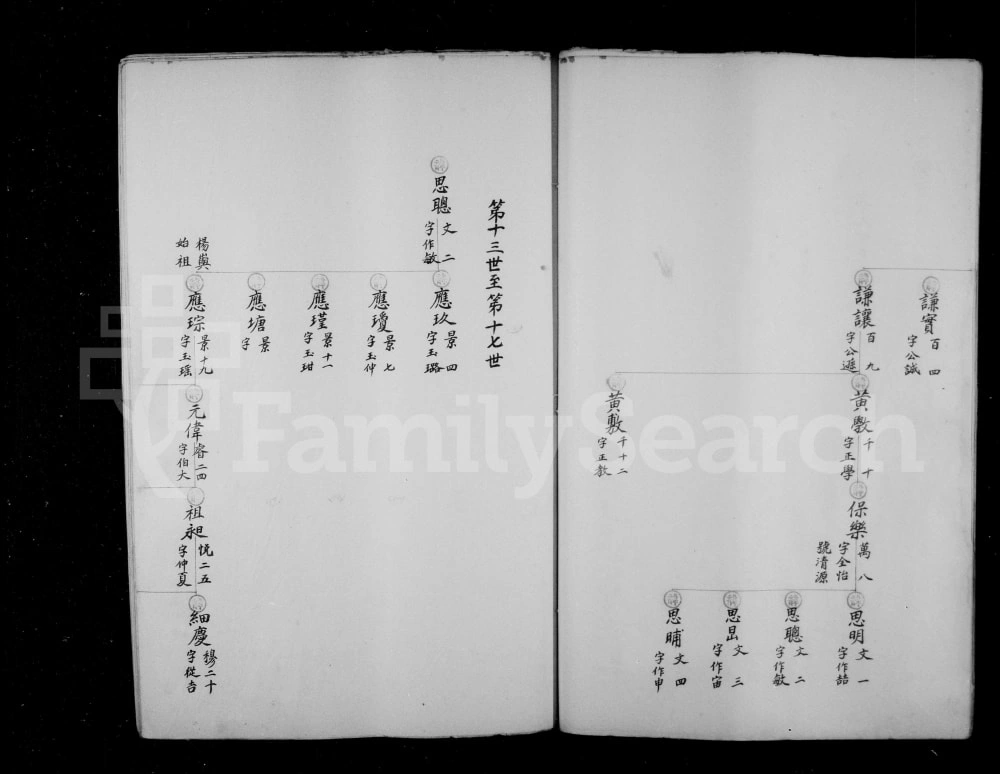 謙實
百四
字公誠
謙讓
百九
字公遜
黃斆
千十
字正學
黃敷
千十二
字正教
保樂
萬八
字全怡
號清源
思明
文一
字作喆
思聰
文二
字作敏
思昌
文三
字作宙
思晡
文四
字作申
第十三世至第十七世
思聰
文二
字作敏
應玖
景四
字玉璐
應瓊
景七
字玉仲
應瑾
景十一
字玉玵
應塘
景
字
楊與
始祖
應琮
景十九
字玉瑶
元偉
睿二四
字伯大
祖昶
悅二五
字仲夏
細慶
穆二十
字從吉
FamilySearch